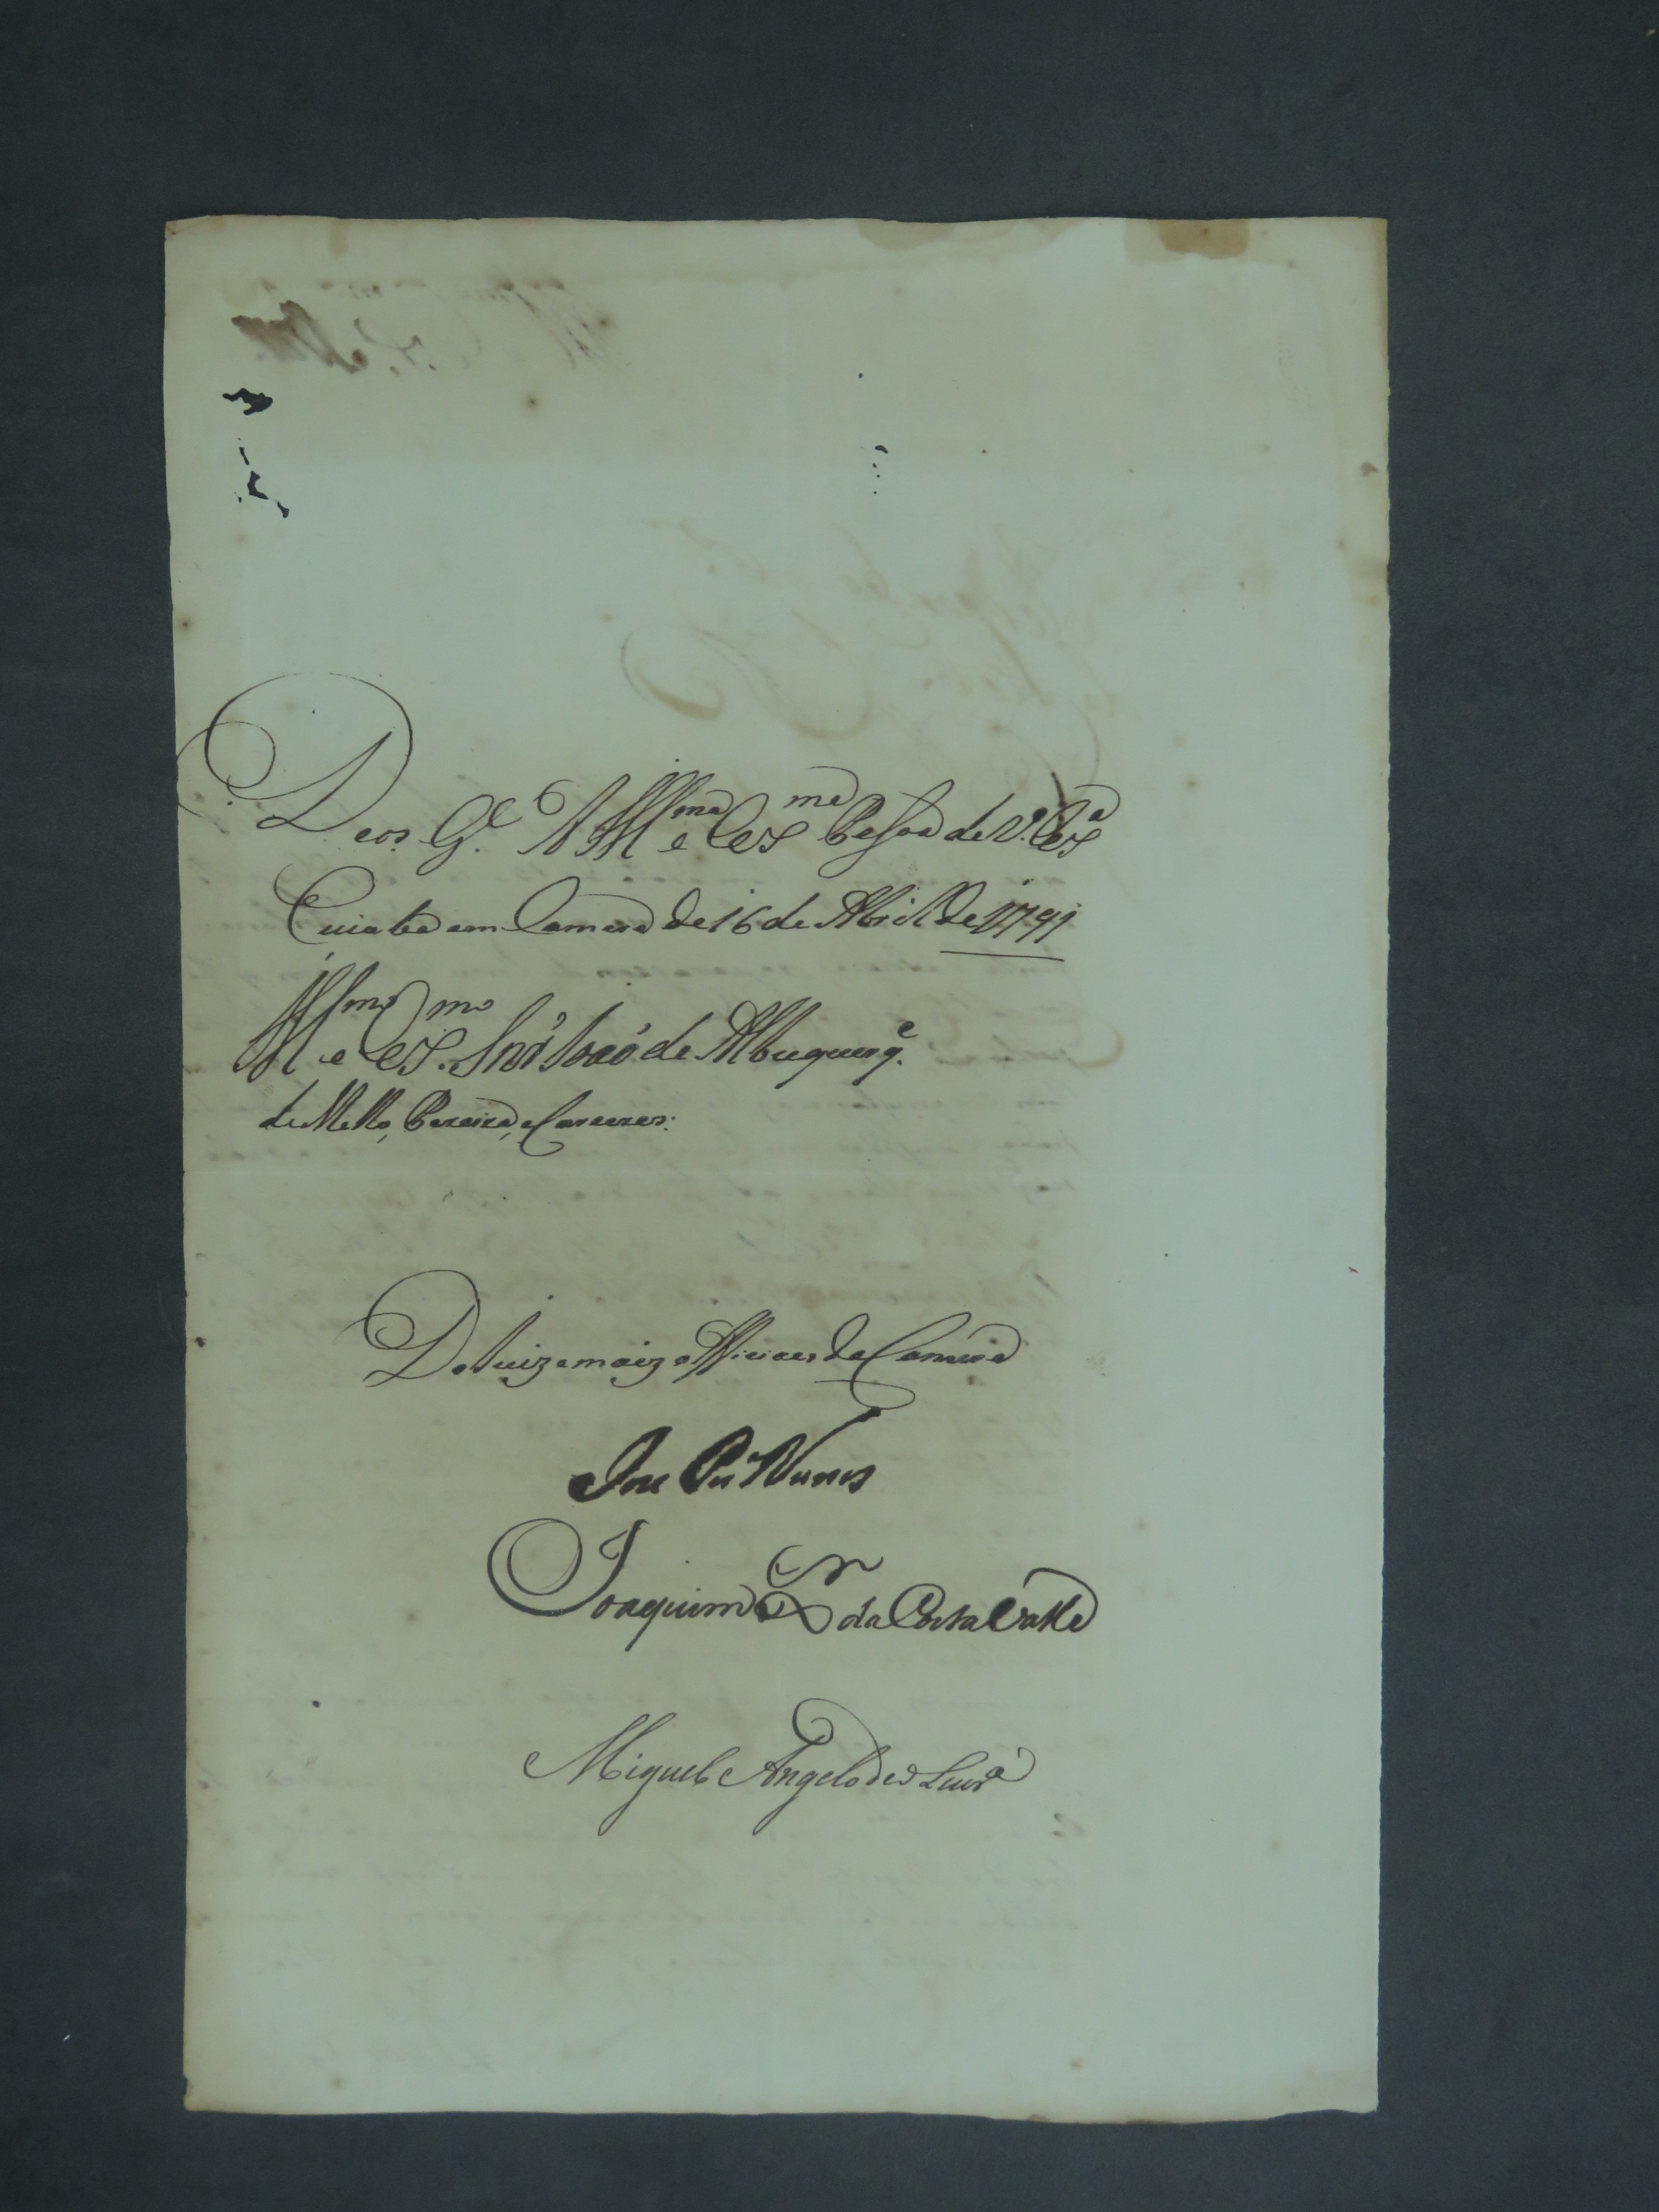 Deos G.e A Illma e Exma Pessoa de V. Exa
Cuiaba em Camera de 16 de Abril de 1791
Illmo e Exmo Snr João de Albuquerq.e
de Mello, Pereira, e Caceres:
Do Juiz e maiz officiaes da Camera
Joze Nunes
Joaquim da Costa
Miguel Angelo de